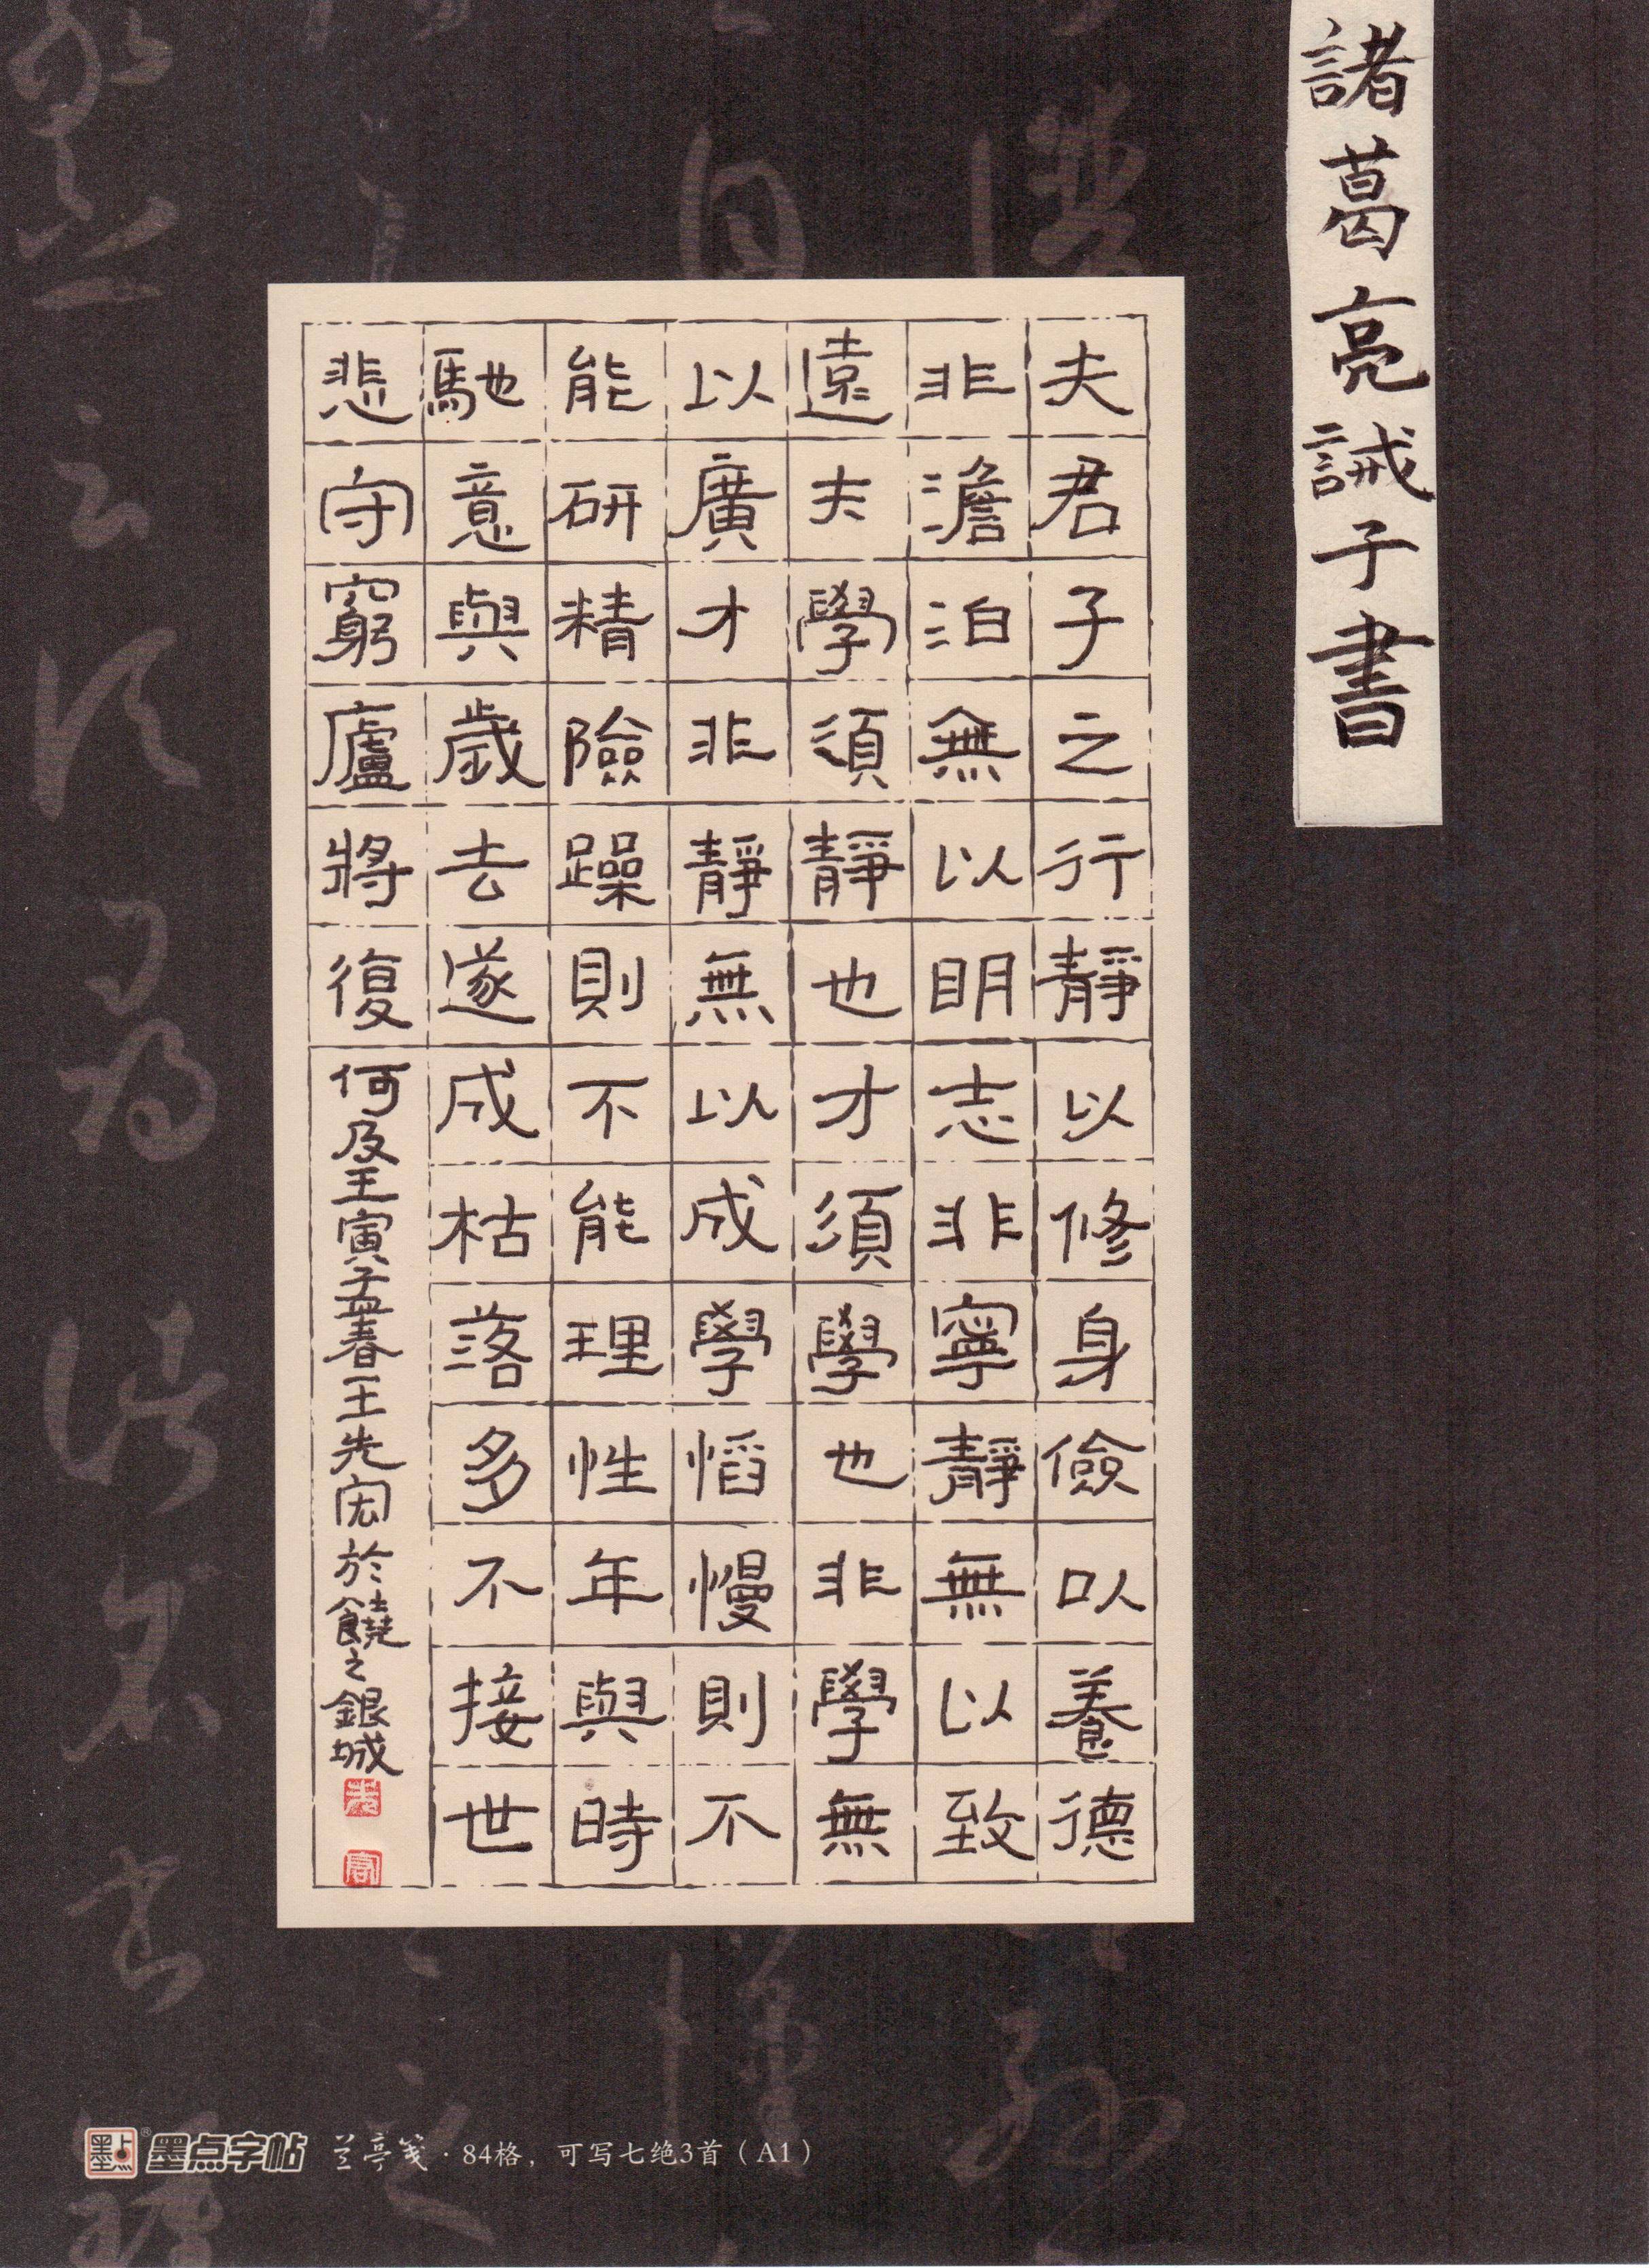 諸葛亮誡子書
夫君子之行靜以修身儉以養德
非澹泊無以明志非寧靜無以致
遠夫學須靜也才須學也非學無
以廣才非靜無以成學慆慢則不
能研精險躁則不能理性年與時
馳意與歲去遂成枯落多不接世
悲守窮廬將復何及壬寅孟春王先宏於饒之銀城
墨点字帖 兰亭笺·84格，可写七绝3首（A1）